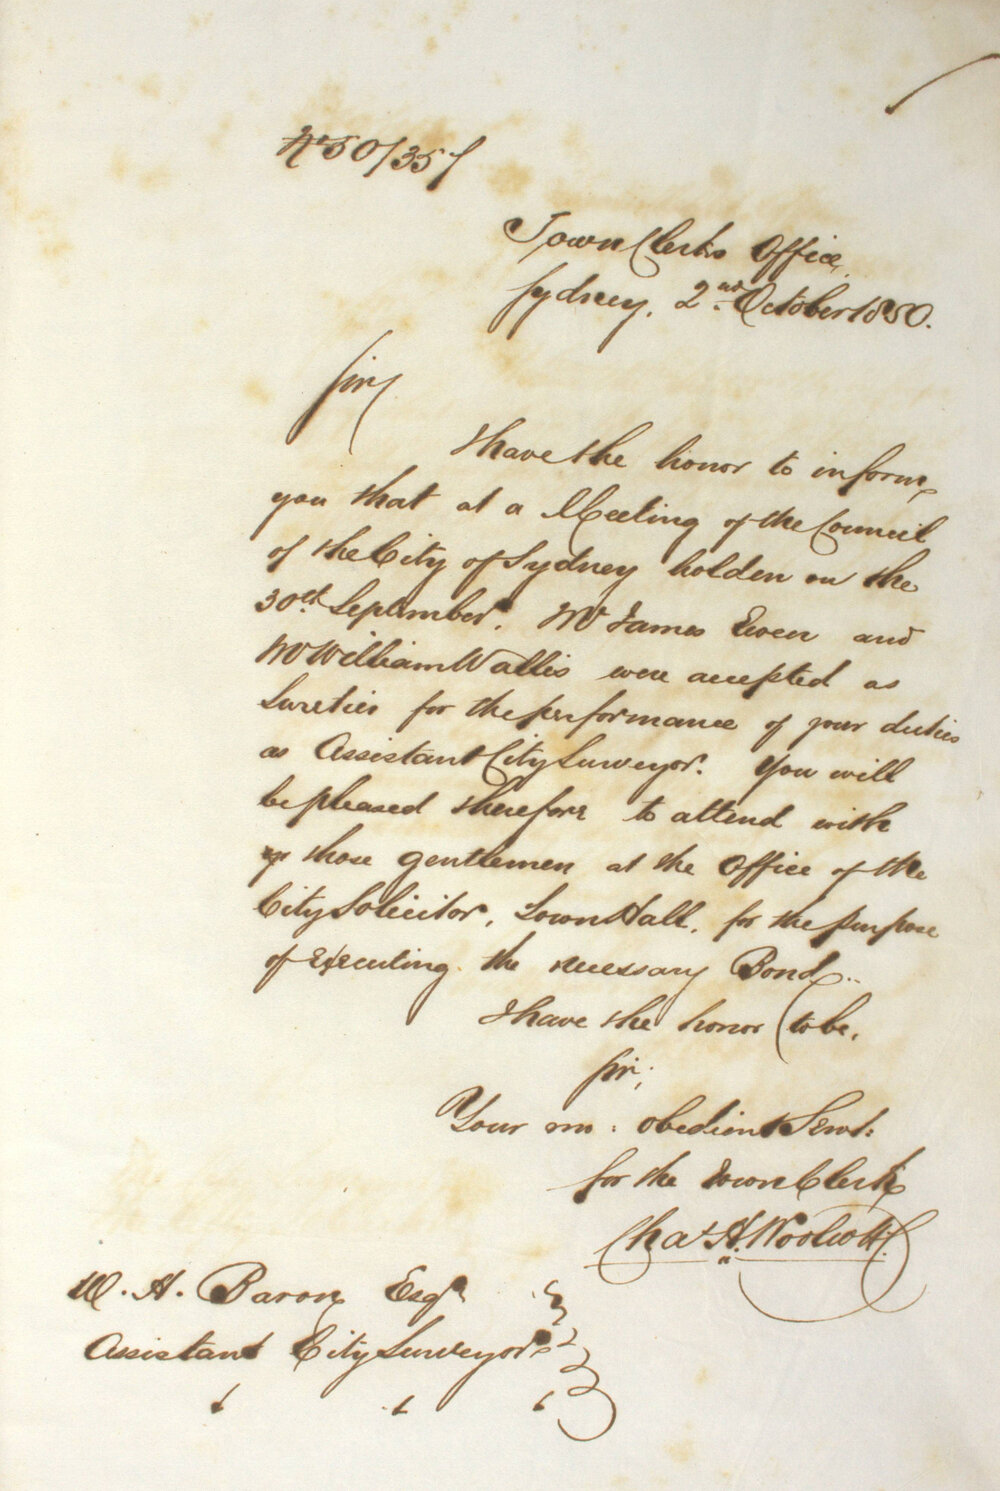 No 50/357
Town Clerk's Office,
Sydney, 2nd October 1850.
Sir,
I have the honor to inform
you that at a Meeting of the Council
of the City of Sydney holden on the
30th September. Mr James Ewen and
Mr William Wallis were accepted as
Sureties for the performance of your duties
as Assistant City Surveyor. You will
be pleased therefore to attend with
those gentlemen at the Office of the
City Solicitor, Town Hall, for the purpose
of Executing the necessary Bond..
I have the honor to be,
Sir,
Your mo: obedient Servt:
for the Town Clerk
Chas. H. Woolcott
W. H. Baron Esqr
Assistant City Surveyor